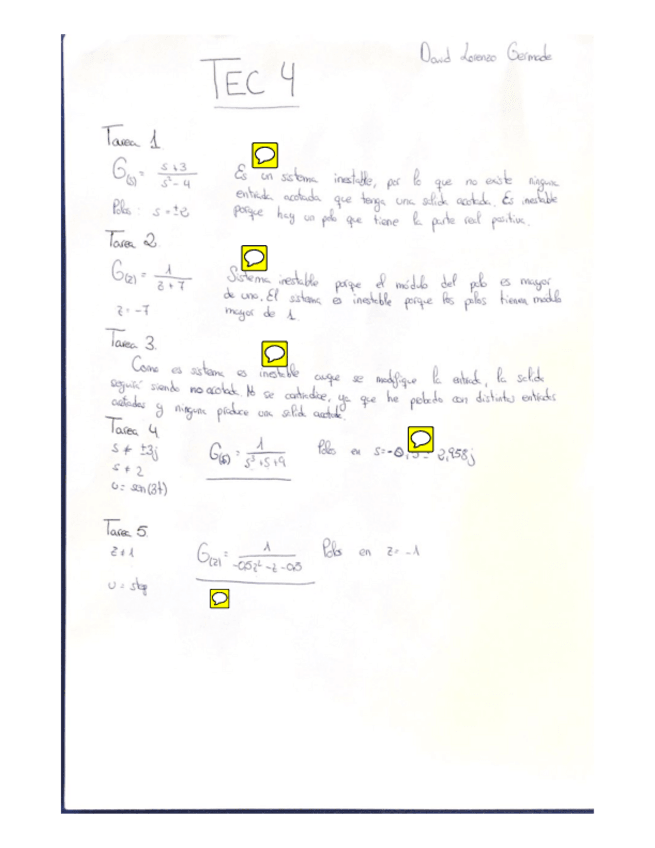 David Lorenzo Germade
TEC 4
Tarea 1
G(s) = s+3 / s²-4
Polos: s = ±2
Es un sistema inestable, por lo que no existe ninguna
entrada acotada que tenga una salida acotada. Es inestable
porque hay un polo que tiene la parte real positiva.
Tarea 2
G(z) = 1 / z+7
z = -7
Sistema inestable porque el módulo del polo es mayor
de uno. El sistema es inestable porque los polos tienen modulo
mayor de 1.
Tarea 3.
Como es sistema es inestable auque se modifique la entrada, la salida
seguirá siendo no acotada. No se contradice, ya que he probado con distintas entradas
acotadas y ninguna produce una salida acotada.
Tarea 4
s ≠ ±3j
s ≠ 2
u = sen(3t)
G(s) = 1 / s²+s+9
Polos en s = -0, 2,958j
Tarea 5
z ≠ 1
u = step
G(z) = 1 / -0,5z²-z-0,5
Polos en z = -1